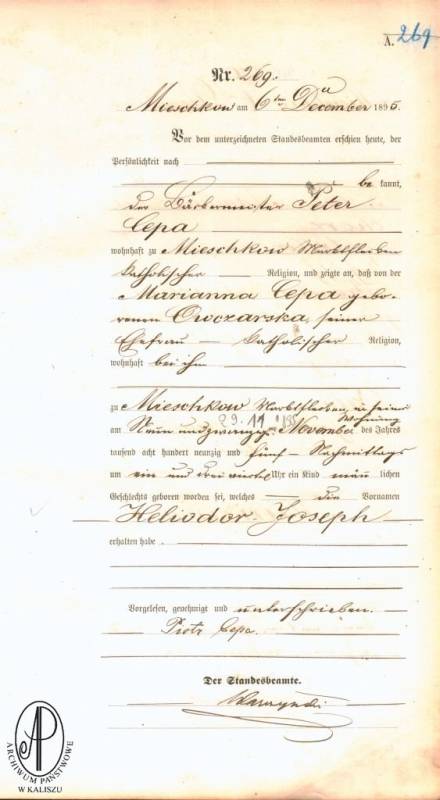 A. 269
Nr. 269.
Mieschkow am 6ten December 1895.
Vor dem unterzeichneten Standesbeamten erschien heute, der
Persönlichkeit nach
be kannt,
der Bäckermeister Peter
Cepa
wohnhaft zu Mieschkow Marktflecken
katholischer Religion, und zeigte an, daß von der
Marianna Cepa gebo-
renen Owczarska, seiner
Ehefrau katholischer Religion,
wohnhaft bei ihm
zu Mieschkow Marktflecken, in seiner
Wohnung
29.11
am Neun und zwanzigsten November des Jahres
tausend acht hundert neunzig und fünf Nachmittags
um ein und drei viertel Uhr ein Kind männ lichen
Geschlechts geboren worden sei, welches die Vornamen
Heliodor Joseph
erhalten habe.
Vorgelesen, genehmigt und unterschrieben.
Piotr Cepa.
Der Standesbeamte.
AP
ARCHIWUM PAŃSTWOWE
W KALISZU